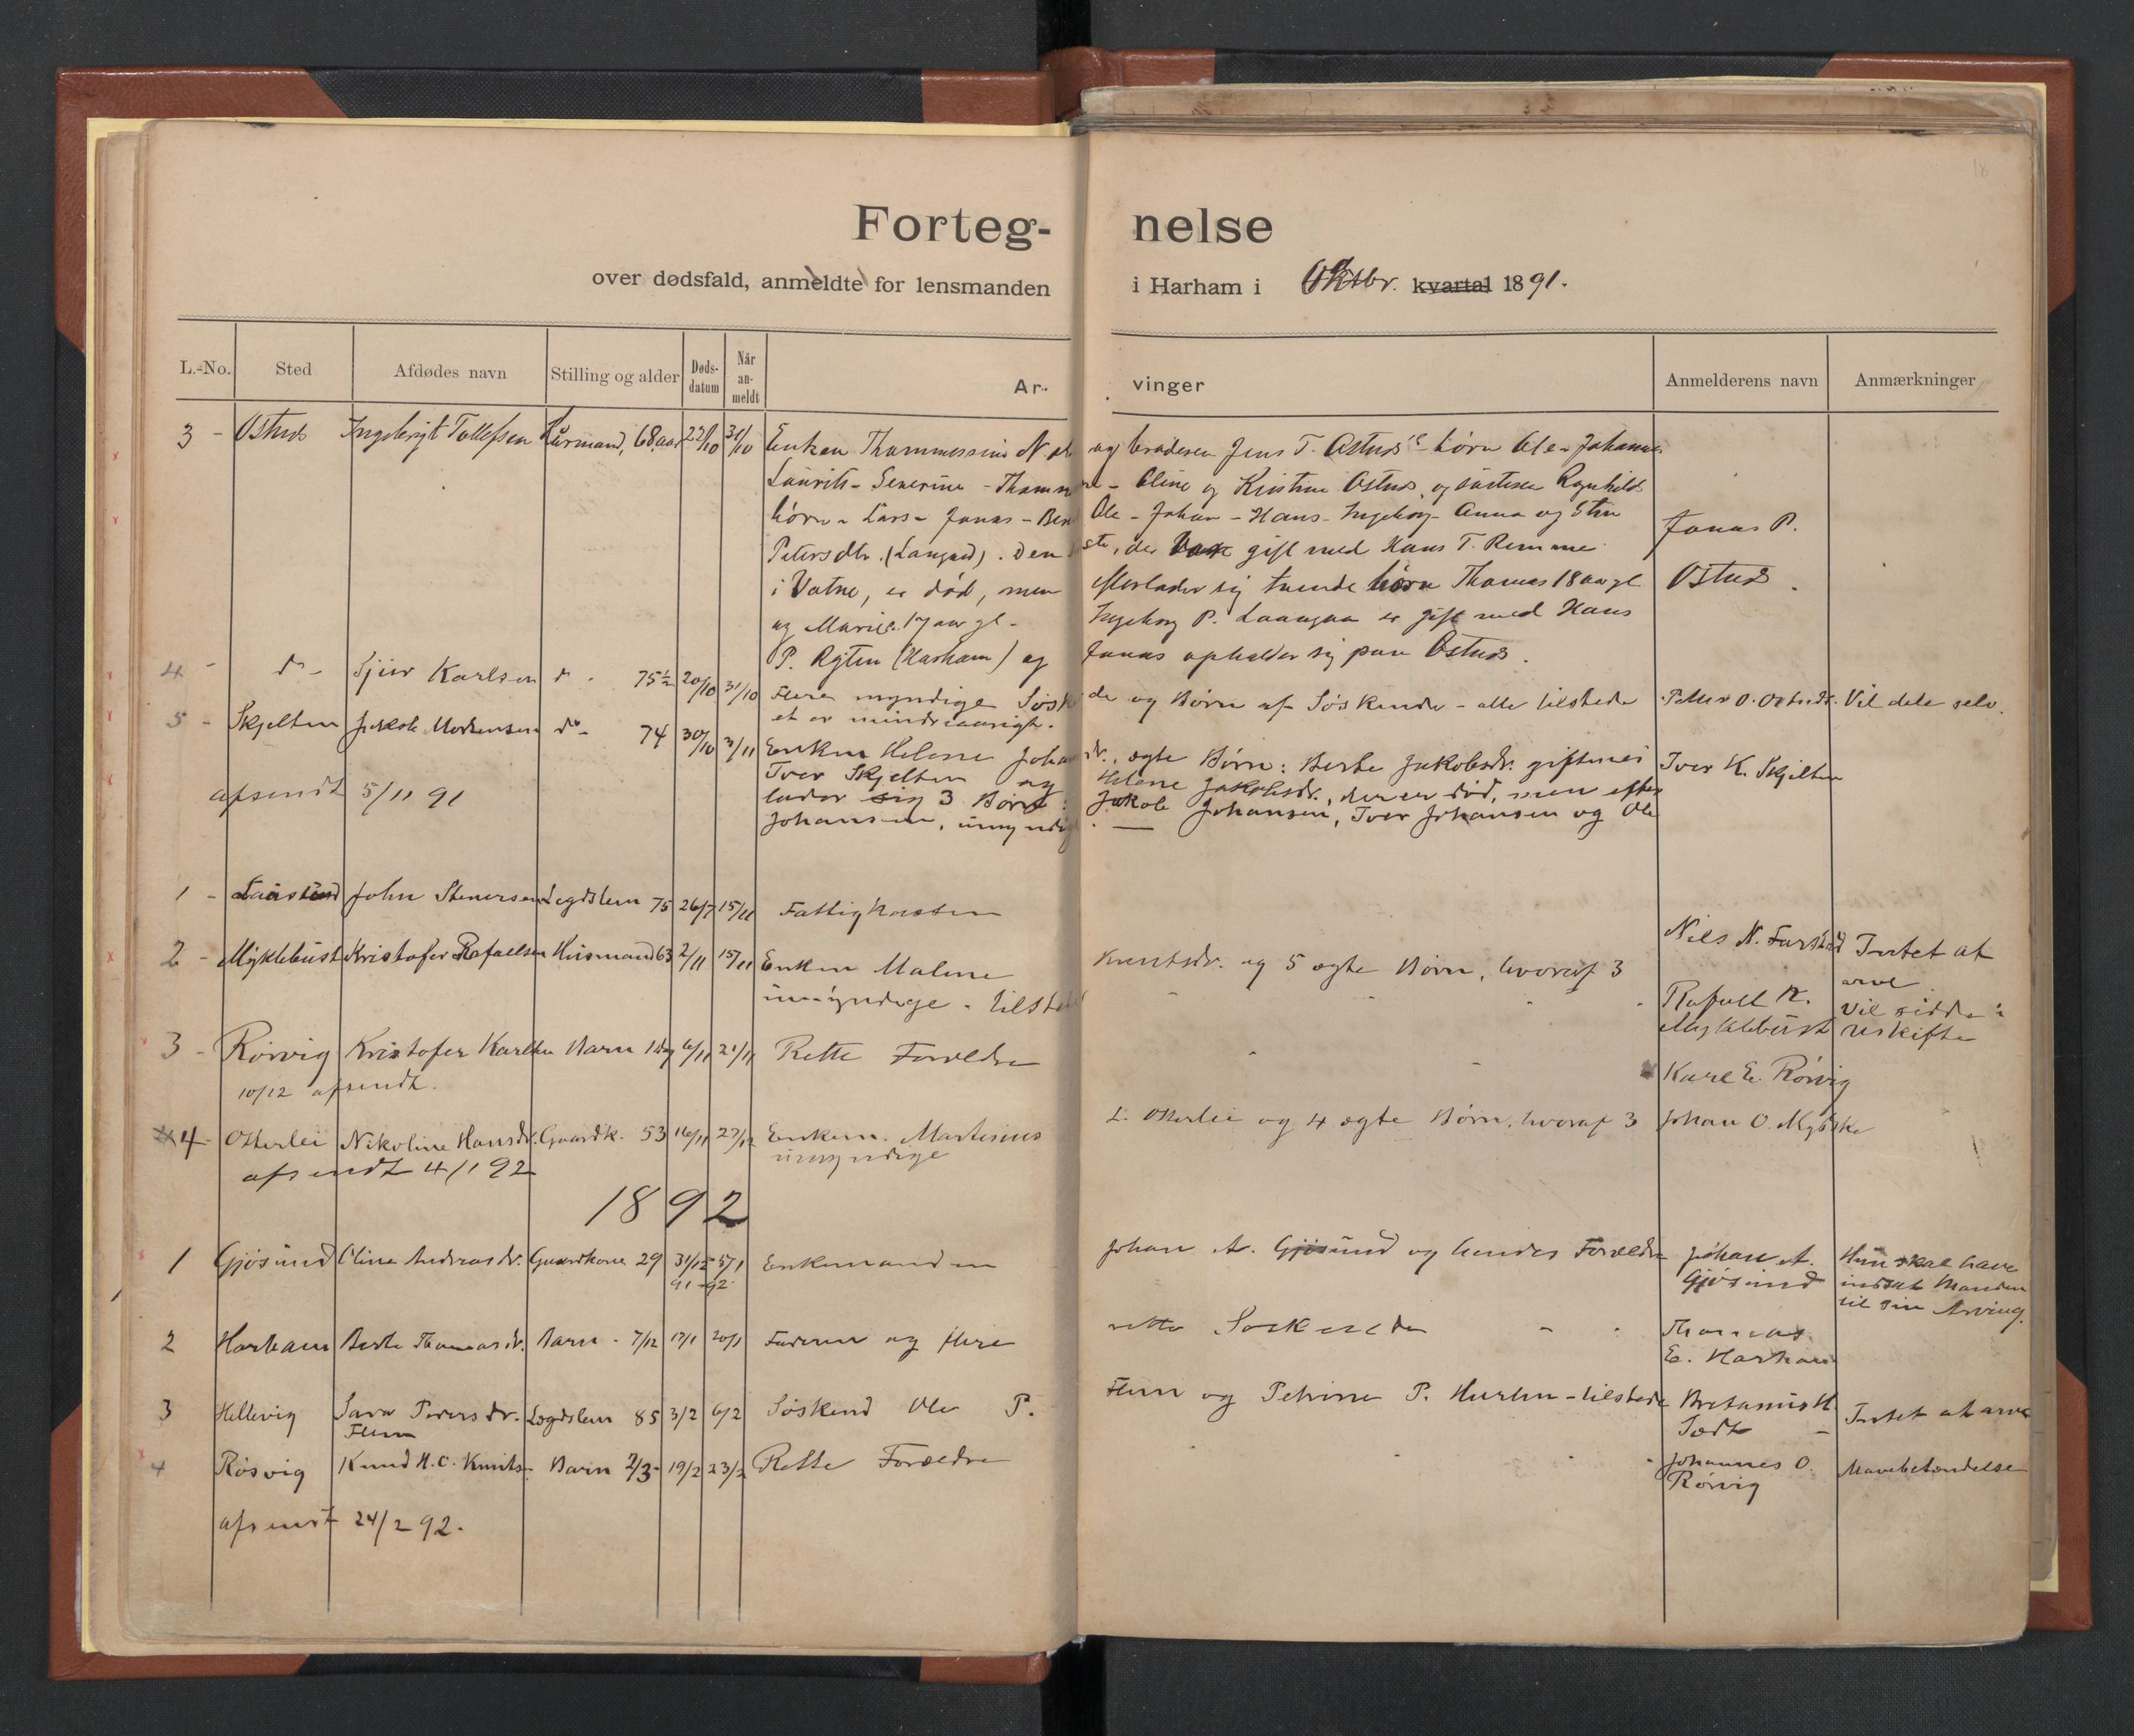 18
Forteg- nelse
over dødsfald, anmeldte for lensmanden i Harham i Oktbr. kvartal 1891.
L.-No. Sted Afdødes navn Stilling og alder Døds-datum Når an-meldt Ar- vinger Anmelderens navn Anmærkninger
3 - Ostnes Ingebrigt Tollefsen Kårmand, 68 aar 22/10 31/10 Enken Thommessine N og broderen Jens T. Ostnes's børn Ole - Johanne
Laurits - Severine - - Oline og Kristine Ostnes, og søsteren Ragnhilds
børn - Lars - Jonas - Ole - Johan - Hans - Ingeborg - Anna og Stine
Petersdtr. (Langaa). Den, der var gift med Hans T. Remme Jonas P.
i Vatne, er død, men efterlader sig tvende børn Thomas 18 aar gl Ostnes
og Marie 17 aar gl. - Ingeborg P. Laangaa er gift med Hans
P. Rogten (Harham) og Jonas opholder sig paa Ostnes.
4 - do - Sjur Karlsen do - 75½ 20/10 31/10 Flere myndige Søskende og Børn af Søskende - alle tilstede Petter O. Ostnes. Vil dele selv.
et er mindreaarigt.
5 - Skjelten Jakob Mortensen do - 74 30/10 3/11 Enken Helene Johansdr., egte Børn: Berte Jakobsdr. gift med Iver K. Skjelten
Iver Skjelten og Helene Jakobsdr., der er død, men efter
afsendt 5/11 91 lader sig 3 Børn: Jakob Johansen, Iver Johansen og Ole
Johansen, umyndige. -
1 - John Stenersen Legdslem 75 26/7 15/11 Fattigkassen Nils N. Farstad Intet at
arve
2 - Myklebust Kristofer Rafaelsen Husmand 63 2/11 15/11 Enken Maline Knutsdr. og 5 egte Børn, hvoraf 3 Rafael K.
umyndige - tilstede Myklebust Vil sidde i
uskifte
3 - Rørvig Kristofer Karlsen Barn 1 dag 6/11 21/11 Rette Forældre Karl E. Rørvig
10/12 afsendt.
4 - Otterlei Nikoline Hansdr. Gaardk. 53 16/11 27/12 Enkem. Martinus L. Otterlei og 4 egte Børn, hvoraf 3 Johan O.
umyndige
afsendt 4/1 92
1892
1 Gjøsund Oline Andreasdr. Gaardkone 29 31/12 91 5/1 92 Enkemanden Johan A. Gjøsund og hendes Forældre Johan A.
Gjøsund Hun skal have
indsat Manden
til sin Arving.
2 Harham Berte Thomasdr. Barn - 7/12 17/1 20/1 Faderen og flere rette Søskende Thomas
E. Harham
3 Hellevig Sara Pedersdr. Legdslem 85 3/2 6/2 Søskend Ole P. Flem og Petrine P. - tilstede H.
Flem Intet at arve
4 Røsvig Knud H.C. Knuts- Barn 2/3 - 19/2 23/2 Rette Forældre Johannes O.
Rørvig Mavebetendelse
afsendt 24/2 92.